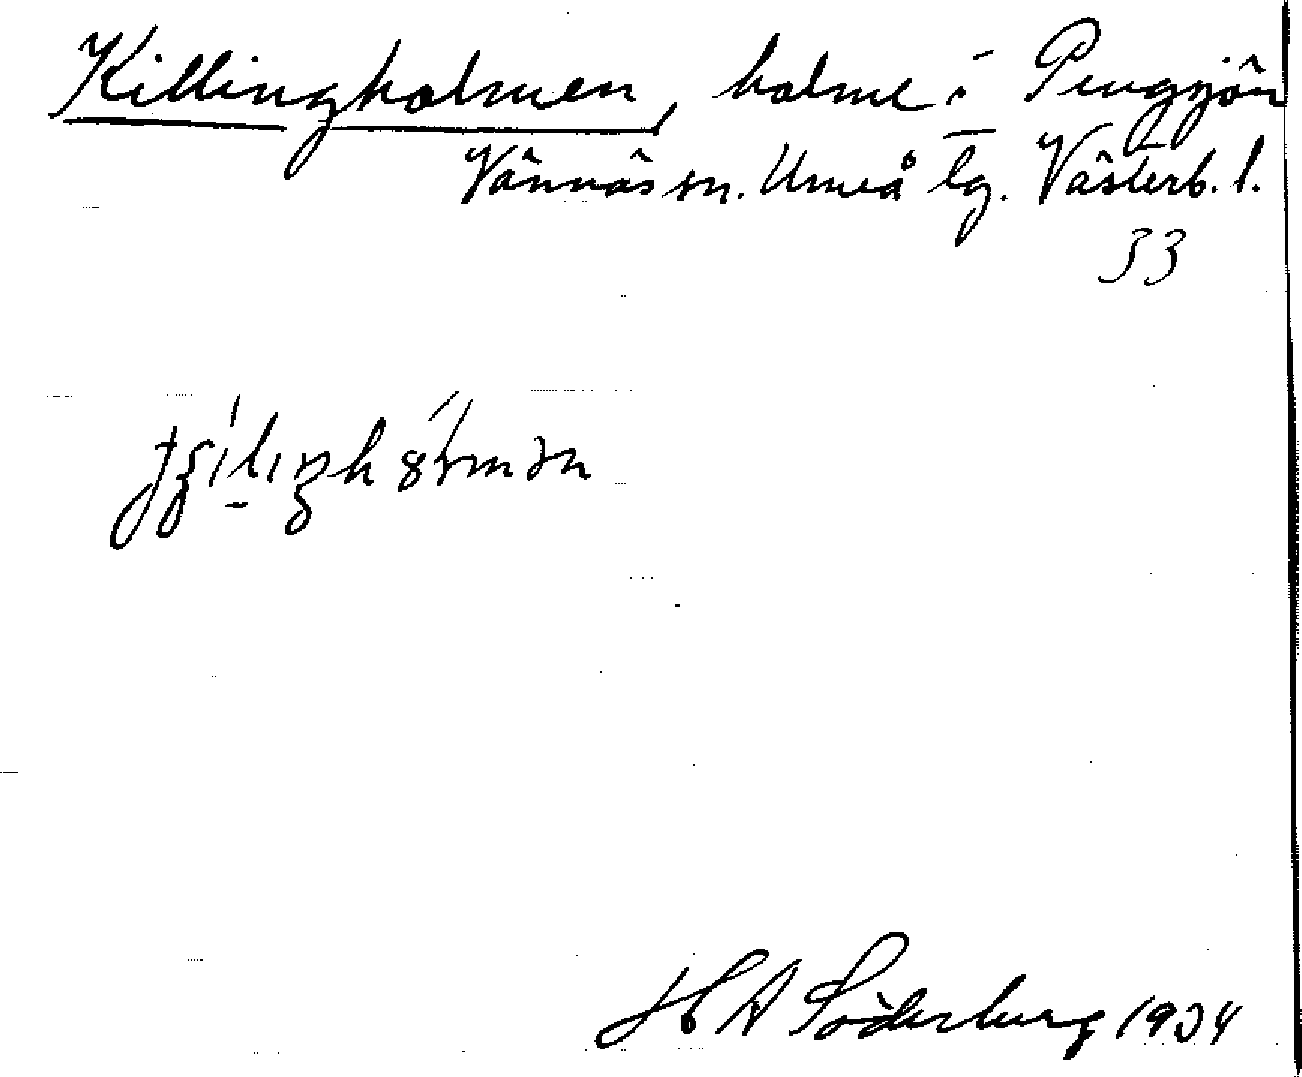 Killingholmen, holme i Pengsjön
Vännäs sn. Umeå tg. Västerb. l.
33
H A Söderberg 1934